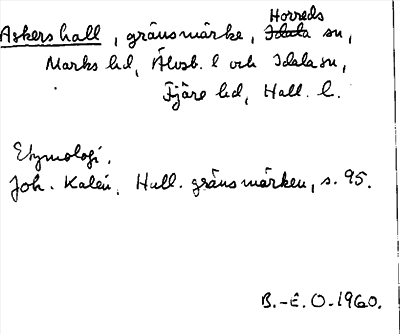 Horreds
Askershall, gränsmärke, Idala sn,
Marks hd, Älvsb. l och Idala sn,
Fjäre hd, Hall. l.
Etymologi.
Joh. Kalén, Hall. gränsmärken, s. 95.
B.-E. O. 1960.